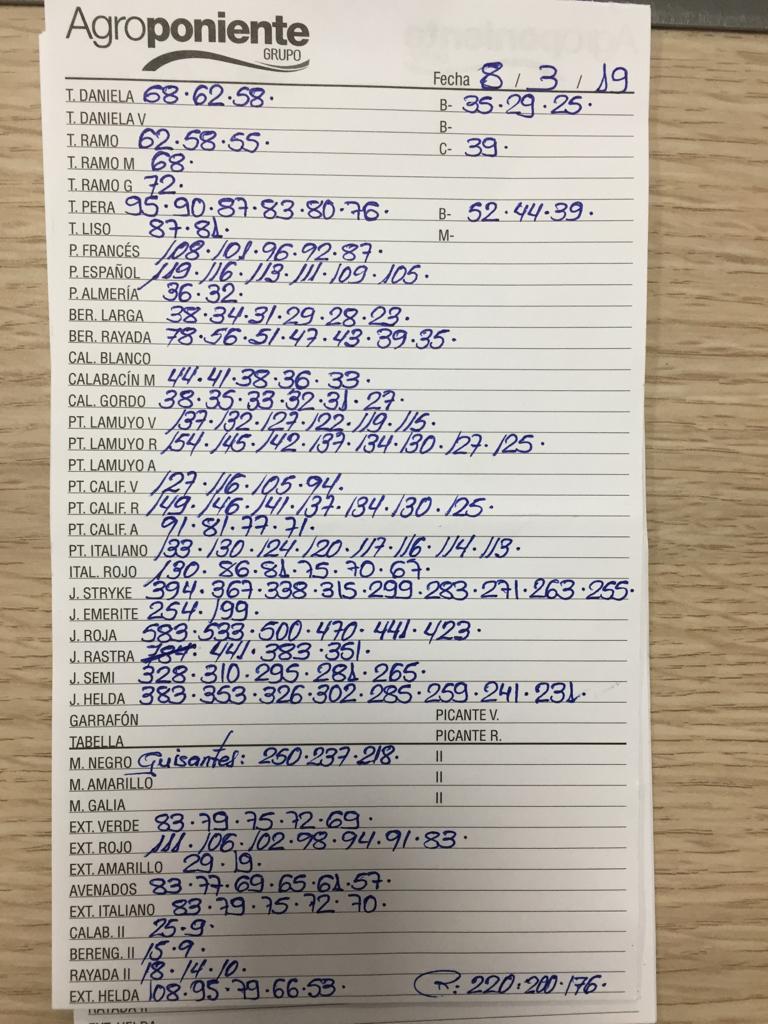 Agroponiente
GRUPO
Fecha 8 / 3 / 19
T. DANIELA 68·62·58· B- 35·29·25·
T. DANIELA V B-
T. RAMO 62·58·55· C- 39·
T. RAMO M 68·
T. RAMO G 72·
T. PERA 95·90·87·83·80·76· B- 52·44·39·
T. LISO 87·81· M-
P. FRANCÉS 108·101·96·92·87·
P. ESPAÑOL 119·116·113·111·109·105·
P. ALMERÍA 36·32·
BER. LARGA 38·34·31·29·28·23·
BER. RAYADA 78·56·51·47·43·39·35·
CAL. BLANCO
CALABACÍN M 44·41·38·36·33·
CAL. GORDO 38·35·33·32·31·27·
PT. LAMUYO V 137·132·127·122·119·115·
PT. LAMUYO R 154·145·142·137·134·130·127·125·
PT. LAMUYO A
PT. CALIF. V 127·116·105·94·
PT. CALIF. R 149·146·141·137·134·130·125·
PT. CALIF. A 91·81·77·71·
PT. ITALIANO 133·130·124·120·117·116·114·113·
ITAL. ROJO 130·86·81·75·70·67·
J. STRYKE 394·367·338·315·299·283·271·263·255·
J. EMERITE 254·199·
J. ROJA 583·533·500·470·441·423·
J. RASTRA 441·383·351·
J. SEMI 328·310·295·281·265·
J. HELDA 383·353·326·302·285·259·241·231·
GARRAFÓN PICANTE V.
TABELLA PICANTE R.
M. NEGRO Guisantes: 250·237·218· II
M. AMARILLO II
M. GALIA II
EXT. VERDE 83·79·75·72·69·
EXT. ROJO 111·106·102·98·94·91·83·
EXT. AMARILLO 29·19·
AVENADOS 83·77·69·65·61·57·
EXT. ITALIANO 83·79·75·72·70·
CALAB. II 25·9·
BERENG. II 15·9·
RAYADA II 18·14·10·
EXT. HELDA 108·95·79·66·53· R: 220·200·176·